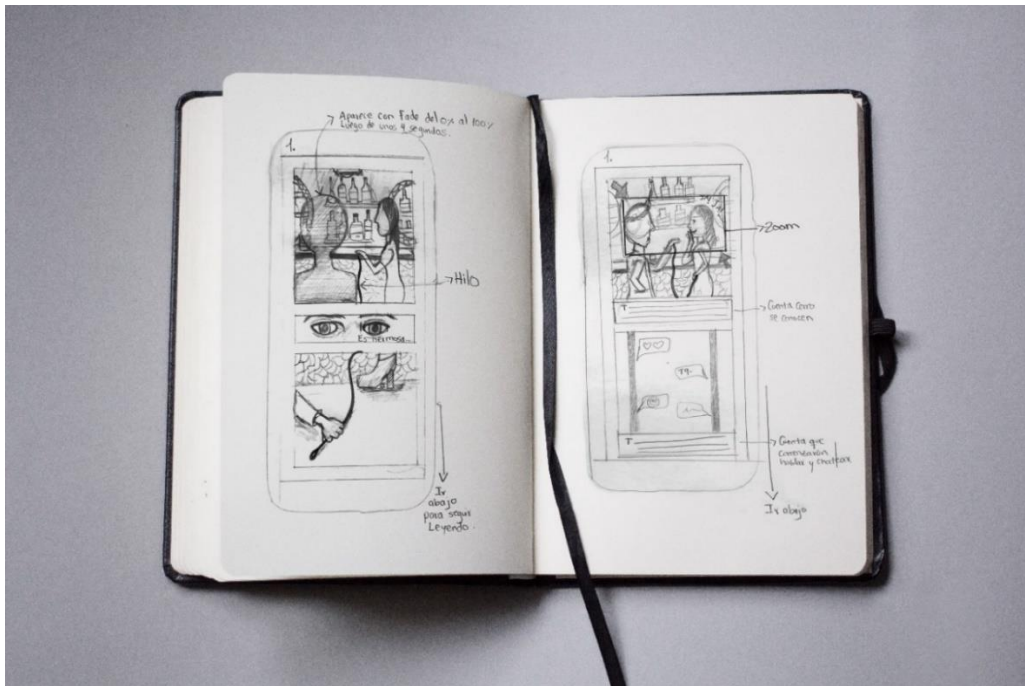 Aparece con Fade del 0% al 100%
luego de unos 4 segundos.
1.
Hilo
Es hermosa...
Ir
abajo
para seguir
Leyendo.
1.
Zoom
T
Cuenta como
se conocen
T
Cuenta que
comenzaron
hablar y chatear
Ir abajo